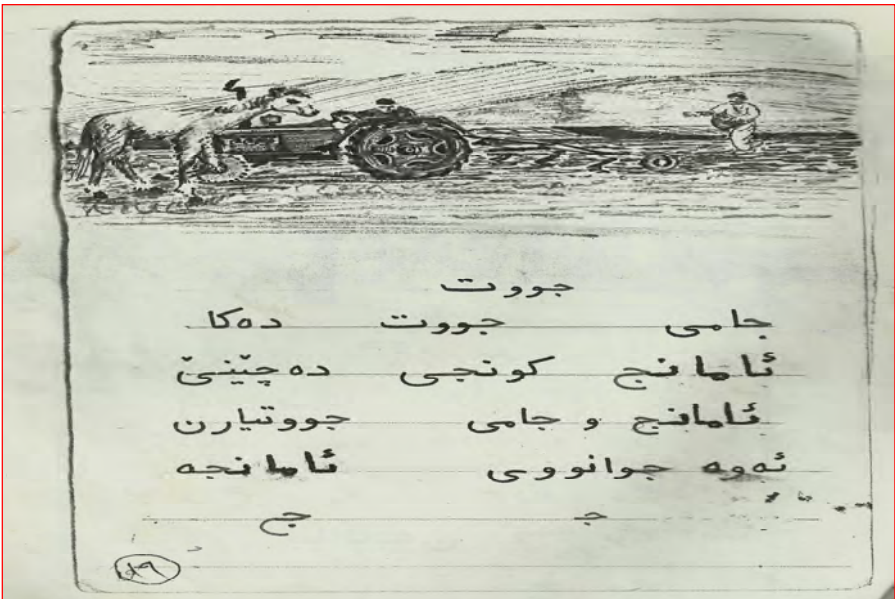 جووت
جامی جووت دەکا
ئامانج کونجی دەچێنێ
ئامانج و جامی جووتیارن
ئەوە جوانووی ئامانجە
جـ ج